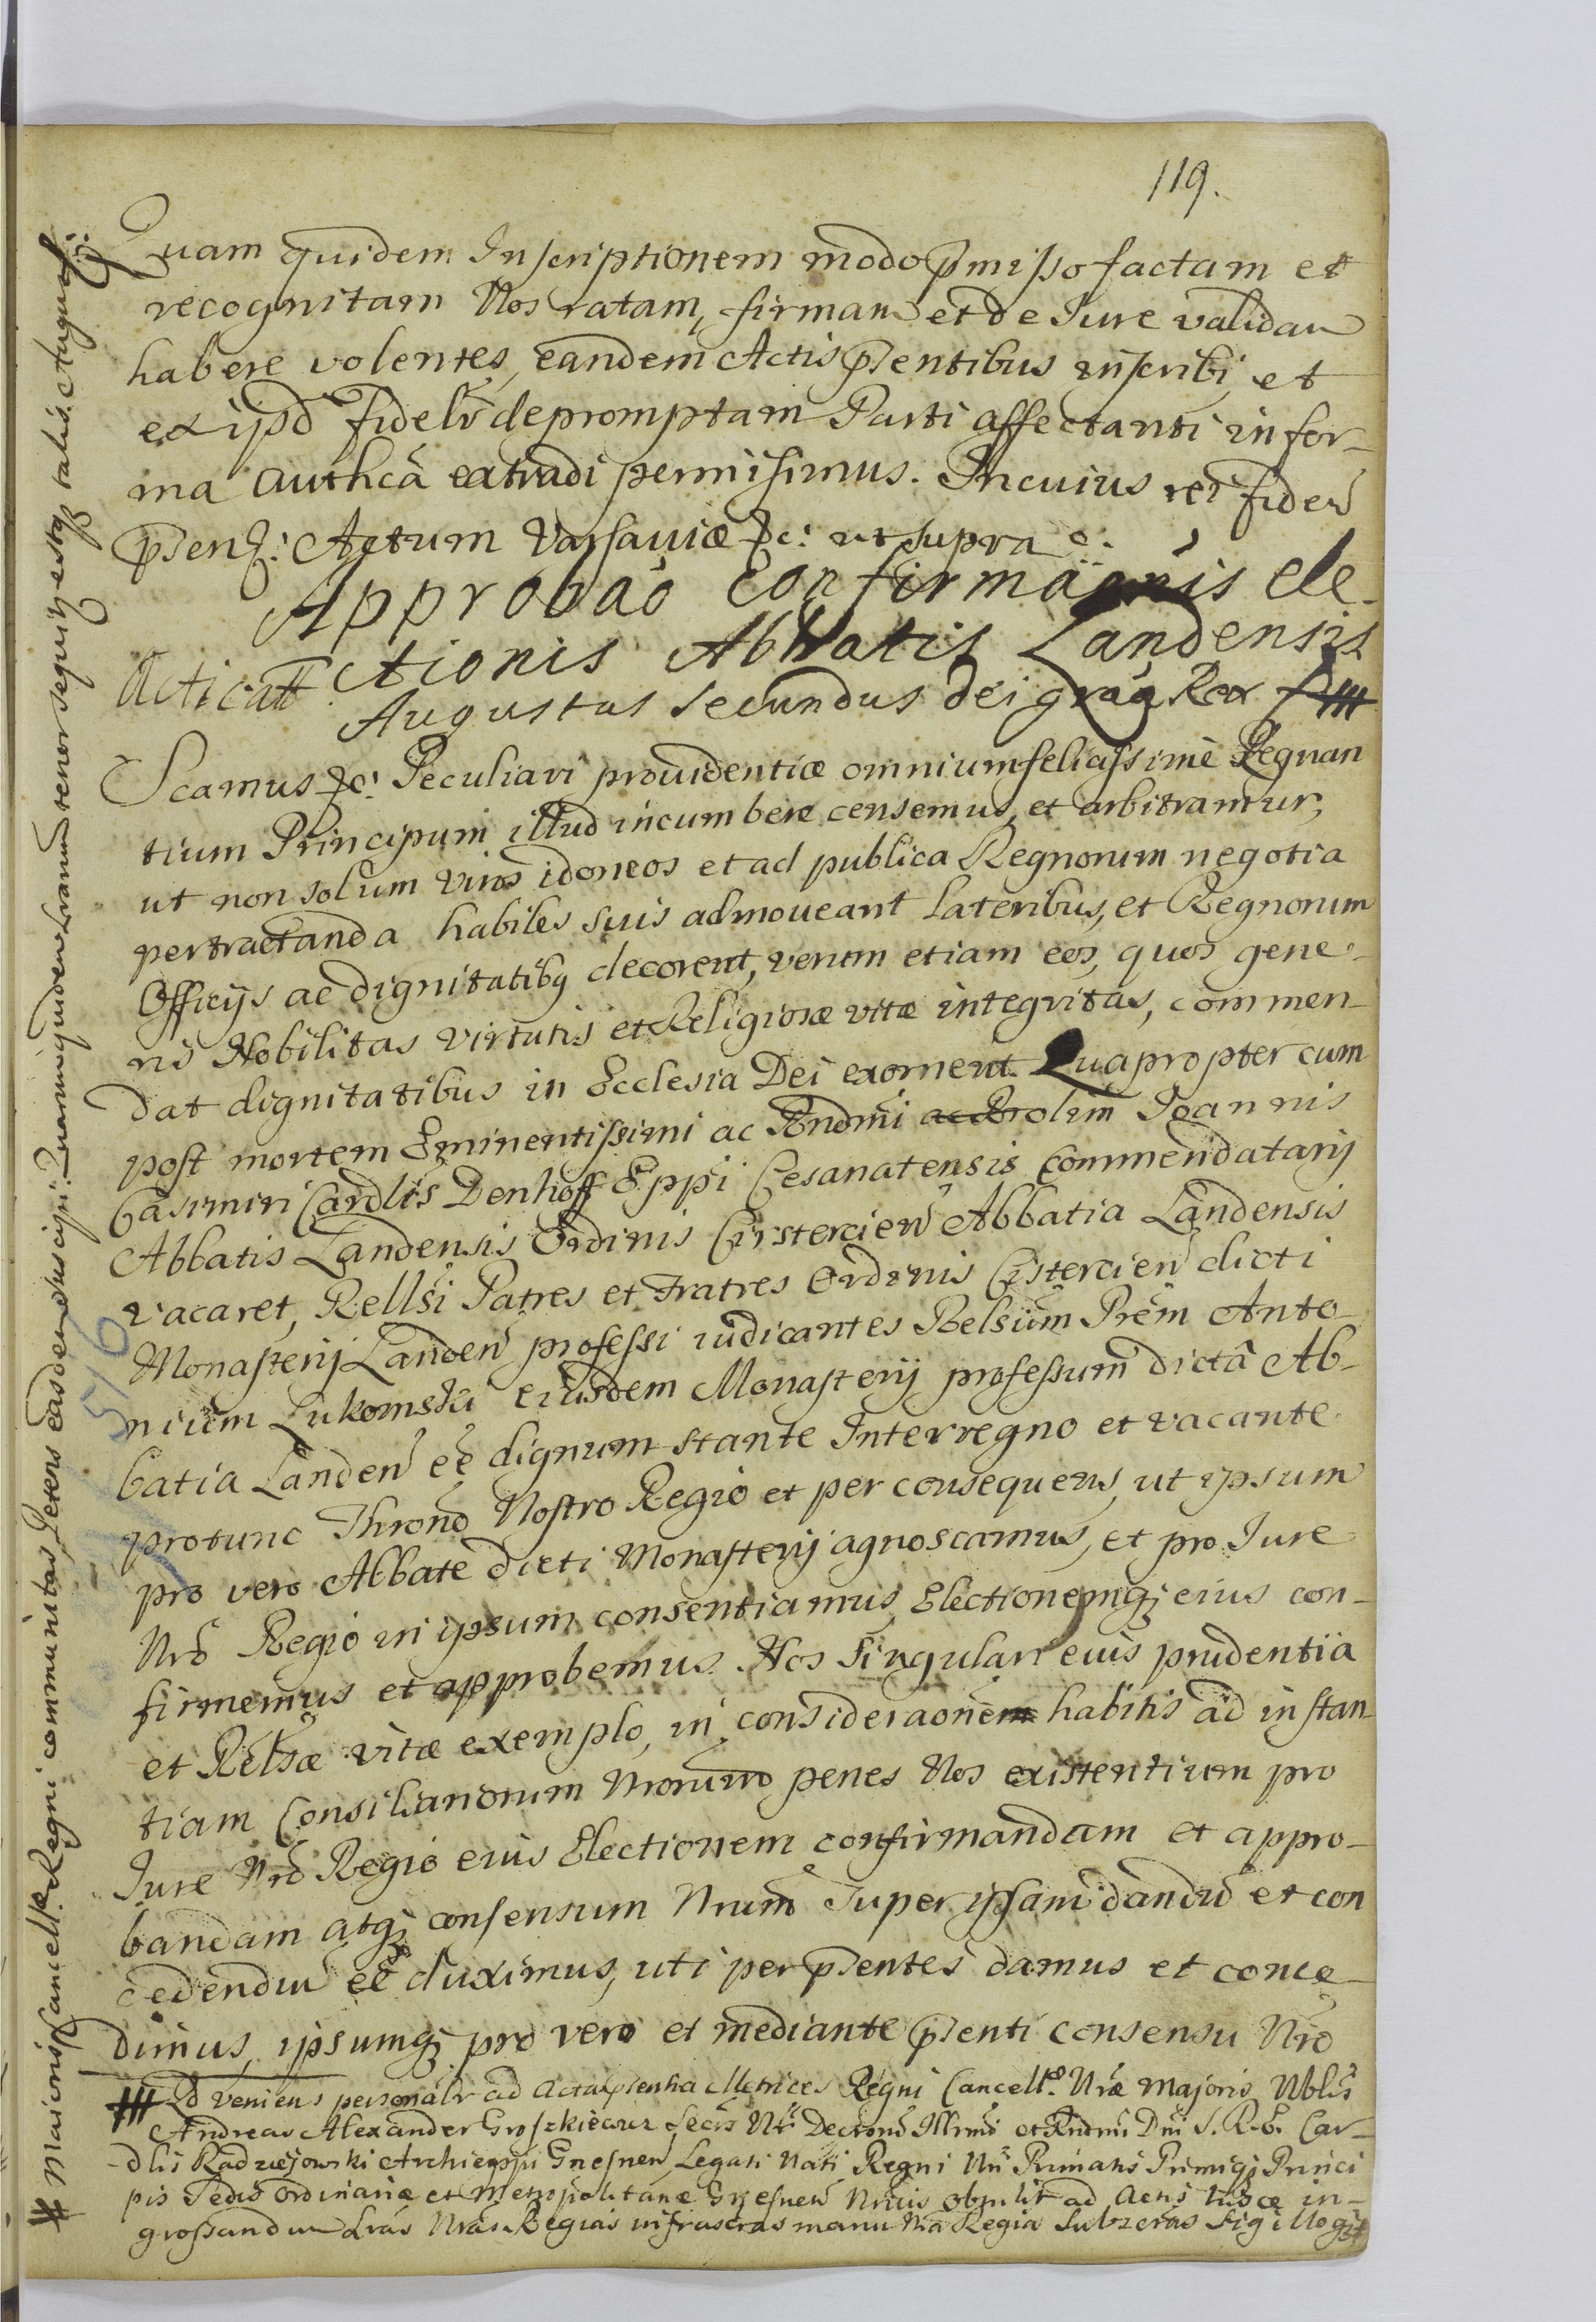 119.
Quam quidem Inscriptionem modo p̃misso factam et
recognitam Nos ratam, firmam et de Iure validam
habere volentes, eandem Actis p̃sentibus inscribi, et
ex ijsd fidelr̃ depromptam Parti affectanti in for-
ma authcã extradi permisimus. In cuius rei fidem
p̃senz: Actum Varsaviæ &c: ut supra
Approbao Confirmaonis ele-
ctionis Abbatis Landensis
Acticatt
Augustus Secundus Dei gr̃aq Rex
Scamus &c: Peculiari providentiæ omnium felicissimè Regnan
tium Principum illud incumbere censemus, et arbitramur,
ut non solum viros idoneos et ad publica Regnorum negotia
pertractanda habiles suis admoveant lateribus, et Regnorum
Officijs ac dignitatibq decorent, verum etiam eos, quos gene-
ris Nobilitas virtutis et Religiosæ vitæ integritas, commen-
dat dignitatibus in Ecclesia Dei exornent. Quapropter cum
post mortem Eminentissimi ac Rndmi olim Joannis
Casimiri Cardlis Denhoff Eppi Cesanatensis Commendatarij
Abbatis Landensis Ordinis Cirsterciẽn Abbatia Landensis
vacaret, Rellsi Patres et Fratres Ordinis Cisterciẽn dicti
Monasterij Landeñ professi iudicantes Relsum Prẽm Anto-
nium Lukomski eiusdem Monasterij professum dictâ Ab-
batia Landeñ eẽ dignum stante Interregno et vacante
protunc Throno Nostro Regio et per consequens, ut ipsum
pro vero Abbate dicti Monasterij agnoscamus, et pro Iure
Nrõ Regio in ipsum consentiamus Electionemq; eius con-
firmemus et approbemus. Nos singulari eius prudentia
et Relsæ vitæ exemplo, in consideraonem habitis ad instan-
tiam Consiliariorum Nrorum penes Nos existentium pro
Iure Nrõ Regio eius Electionem confirmandam et appro-
bandam atq; consensum Nrum super ipsam dandũ et con
cedendũ eẽ duximus, uti per p̃sentes damus et conce-
dimus, ipsumq; pro vero et mediante p̃senti consensu Nrõ
Ad veniens personalr̃ ad Acta p̃sentia Metrices Regni Cancell. Nræ Majoris Nblis
Andreas Alexander Secrs Illrmi et Rndmi Dni S. R. E. Car-
dlis Radziejowski Archieppi Gnesnen Legati Nati Regni Nri Primatis Primiq; Princi
pis Sedis Ordinariæ et Metropolitanæ Gnesneñ obtulit ad Actis hisce in-
grossandum Lrãs Nrãs Regias infrascrãs manu Nrã Regia Subscrãs Sigilloq;
Maioris Cancell. Regni communitas, Petens easdem suscipi: Quarum quidem Lrarum tenor sequitur estq talis. Augustus: